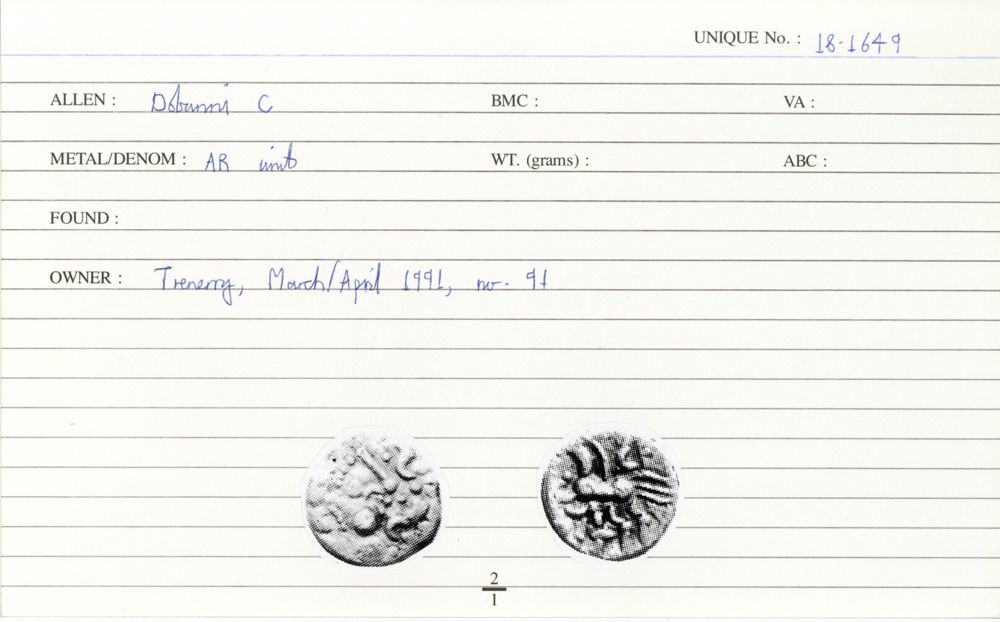 UNIQUE No. : 18-1649
ALLEN : Dobunni C BMC : VA :
METAL/DENOM : AR unit WT. (grams) : ABC :
FOUND :
OWNER : Trenerry, March/April 1991, no. 91
2
1